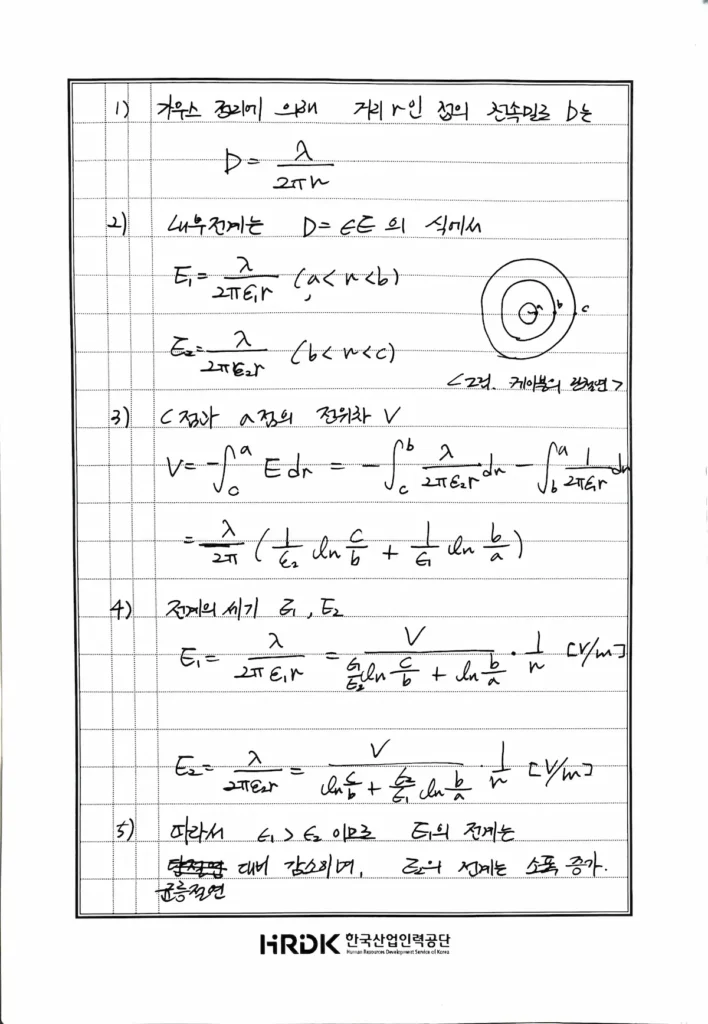 1) 가우스 정리에 의해 거리 r인 점의 전속밀도 D는
D = λ / 2πr
2) 내부전계는 D = εE 의 식에서
E₁ = λ / 2πε₁r (a < r < b)
a b c
E₂ = λ / 2πε₂r (b < r < c)
<그림. 케이블의 단절연>
3) C점과 a점의 전위차 V
V = -∫_c^a E dr = -∫_c^b λ / 2πε₂r dr - ∫_b^a 1 / 2πε₁r dr
= λ / 2π ( 1/ε₂ ln c/b + 1/ε₁ ln b/a )
4) 전계의 세기 E₁, E₂
E₁ = λ / 2πε₁r = V / (ε₁/ε₂ ln c/b + ln b/a) · 1/r [V/m]
E₂ = λ / 2πε₂r = V / (ln c/b + ε₂/ε₁ ln b/a) · 1/r [V/m]
5) 따라서 ε₁ > ε₂ 이므로 E₁의 전계는
대비 감소하며, E₂의 전계는 소폭 증가.
균등절연
HRDK 한국산업인력공단
Human Resources Development Service of Korea